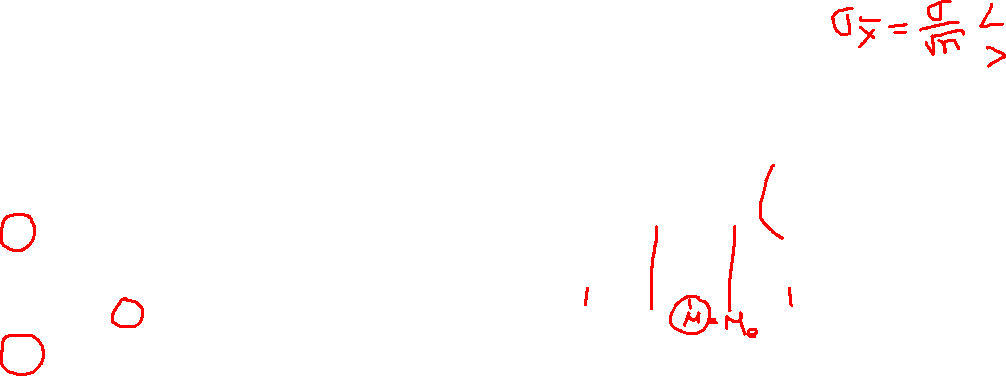 σx̄ = σ/√n <
>
μ = μ₀